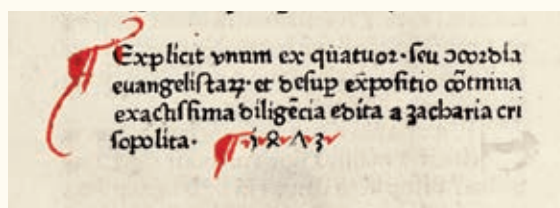 ¶ Explicit vnum ex quatuor·seu ↄcordia
euangelistaꝝ·et desuꝑ exp̄ositio cōtinua
exactissima diligēcia edita a zacharia cri
sopolita· ¶ 1ꝝΛ3